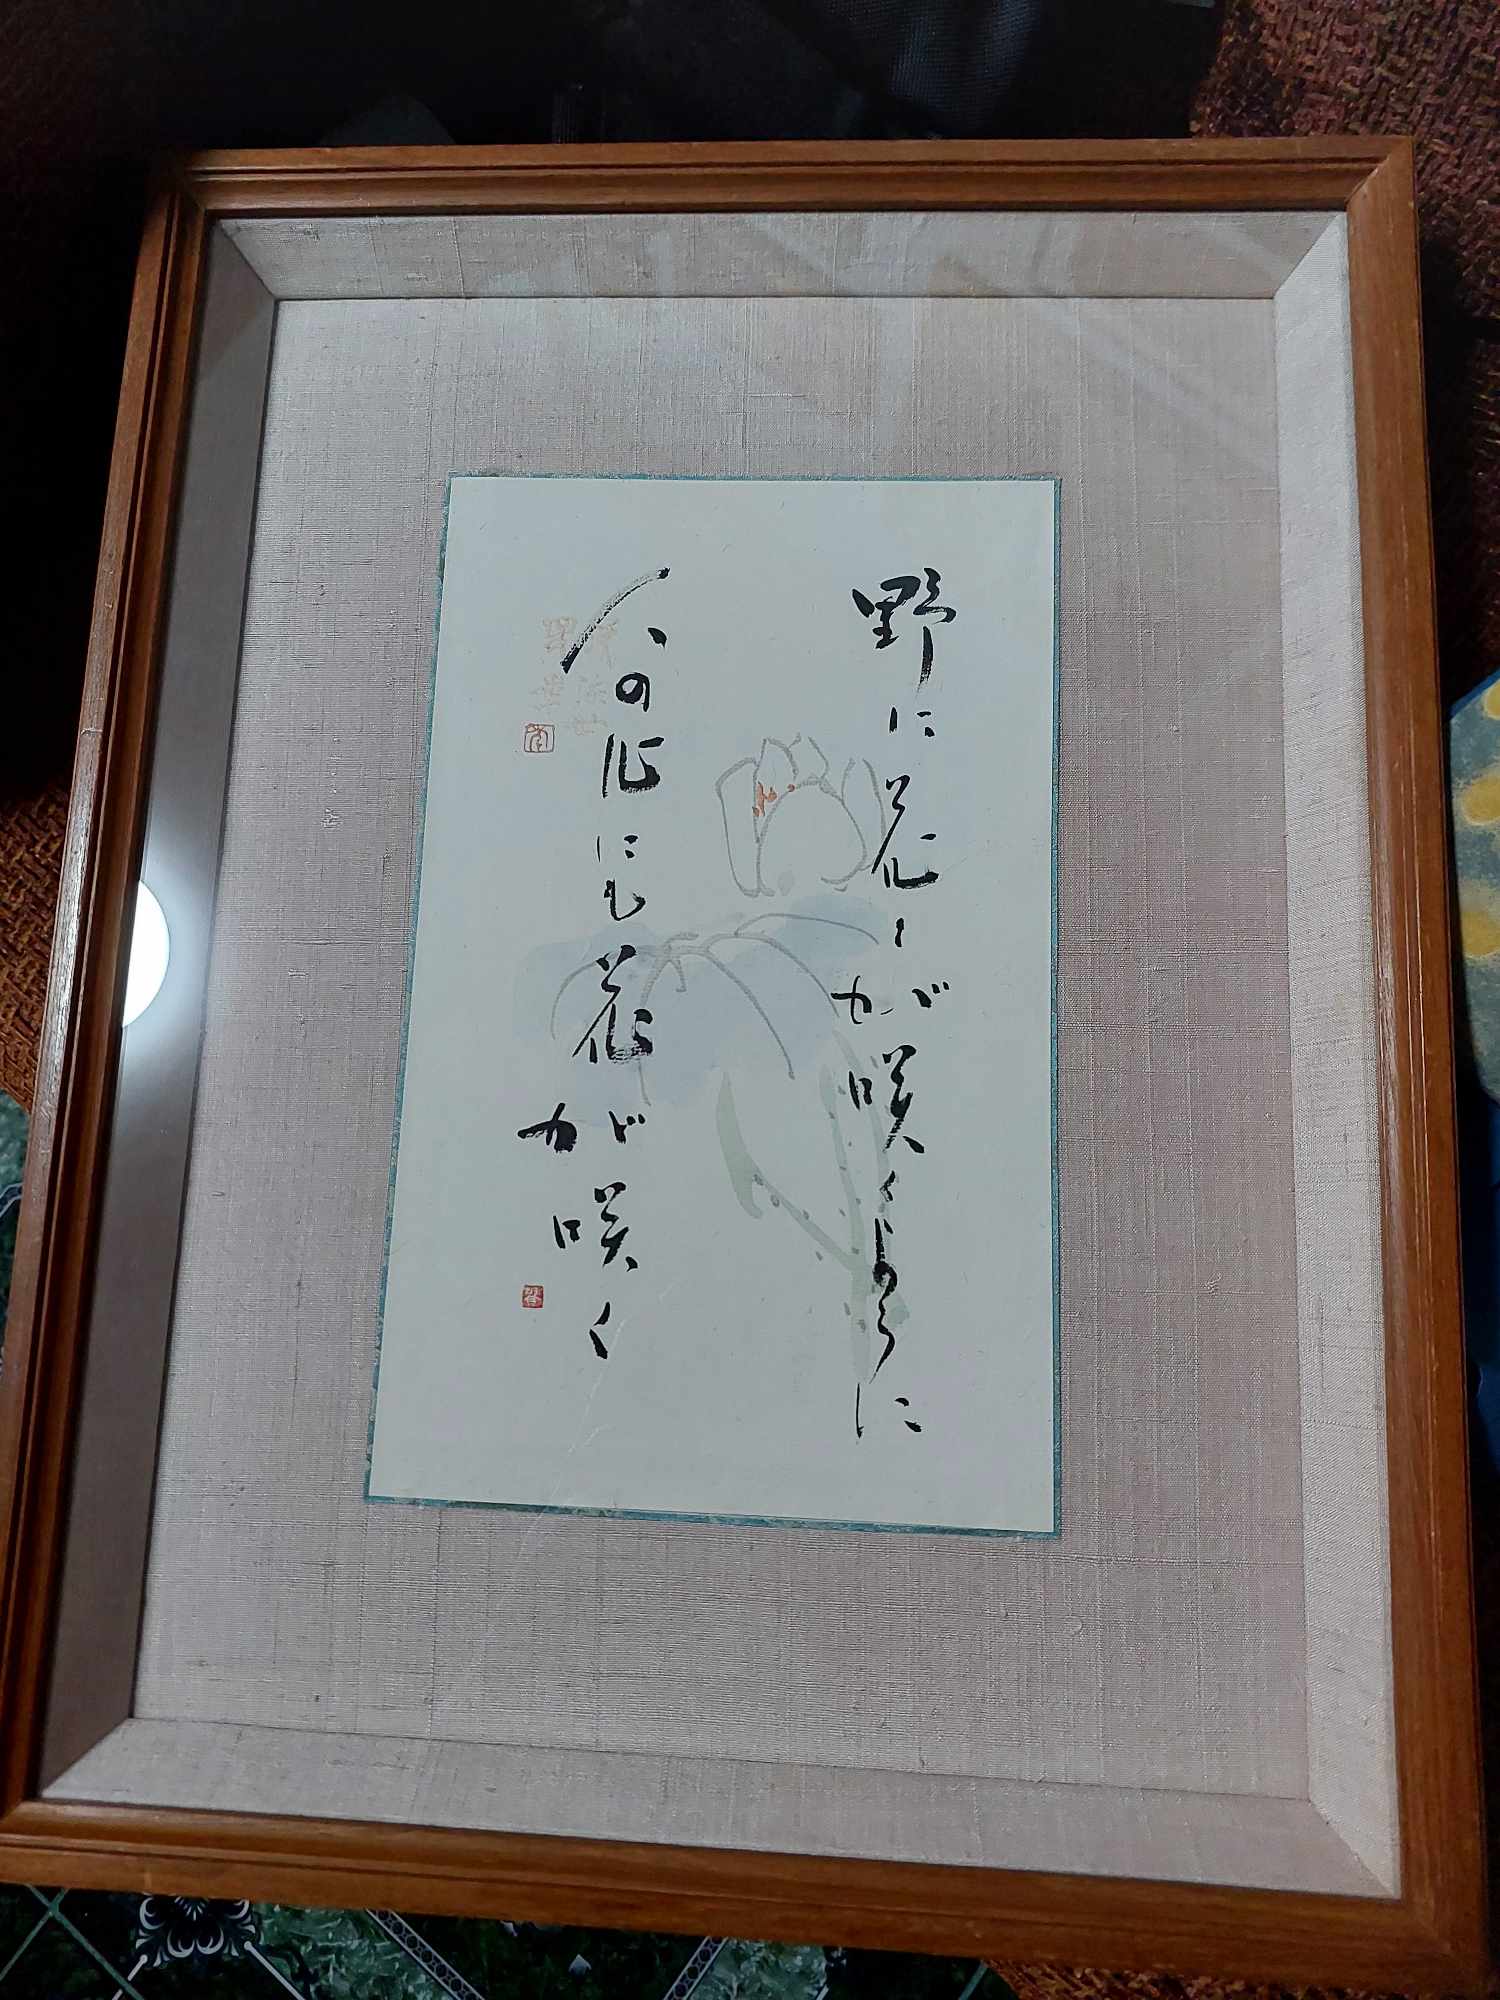 野に花が咲くように
人の心にも花が咲く